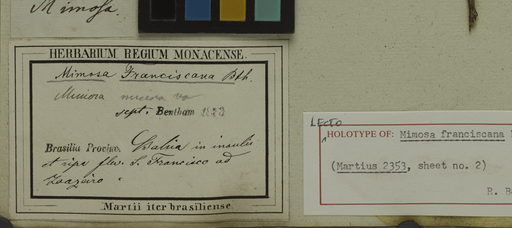 Mimosa.
HERBARIUM REGIUM MONACENSE.
Mimosa Franciscana Bth.
Mimosa
sept. Bentham
Brasilia Provinc. Bahia in insulis
et ripa fluv. S. Francisco ad
Joazeiro.
Martii iter brasiliense.
LECTO
HOLOTYPE OF: Mimosa franciscana
(Martius 2353, sheet no. 2)
R.